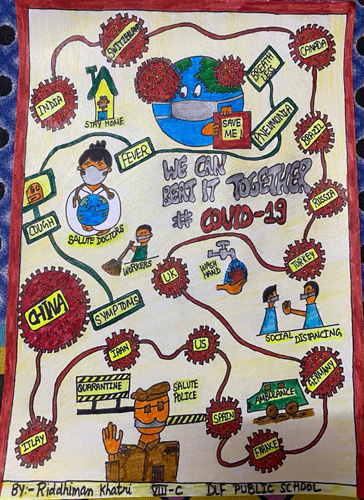 SWITZERLAND
CANADA
INDIA
STAY HOME
SAVE
ME!
BREATH
LESS
PNEUMONIA
BRAZIL
FEVER
WE CAN
BEAT IT TOGETHER
# COVID-19
RUSSIA
COUGH
SALUTE DOCTORS
WORKERS
UK
WASH
HAND
TURKEY
CHINA
SYMPTOMS
SOCIAL DISTANCING
IRAN
US
GERMANY
QUARANTINE
SALUTE
POLICE
AMBULANCE
SPAIN
ITLAY
FRANCE
BY:- Riddhiman Khatri VIII-C DLF PUBLIC SCHOOL